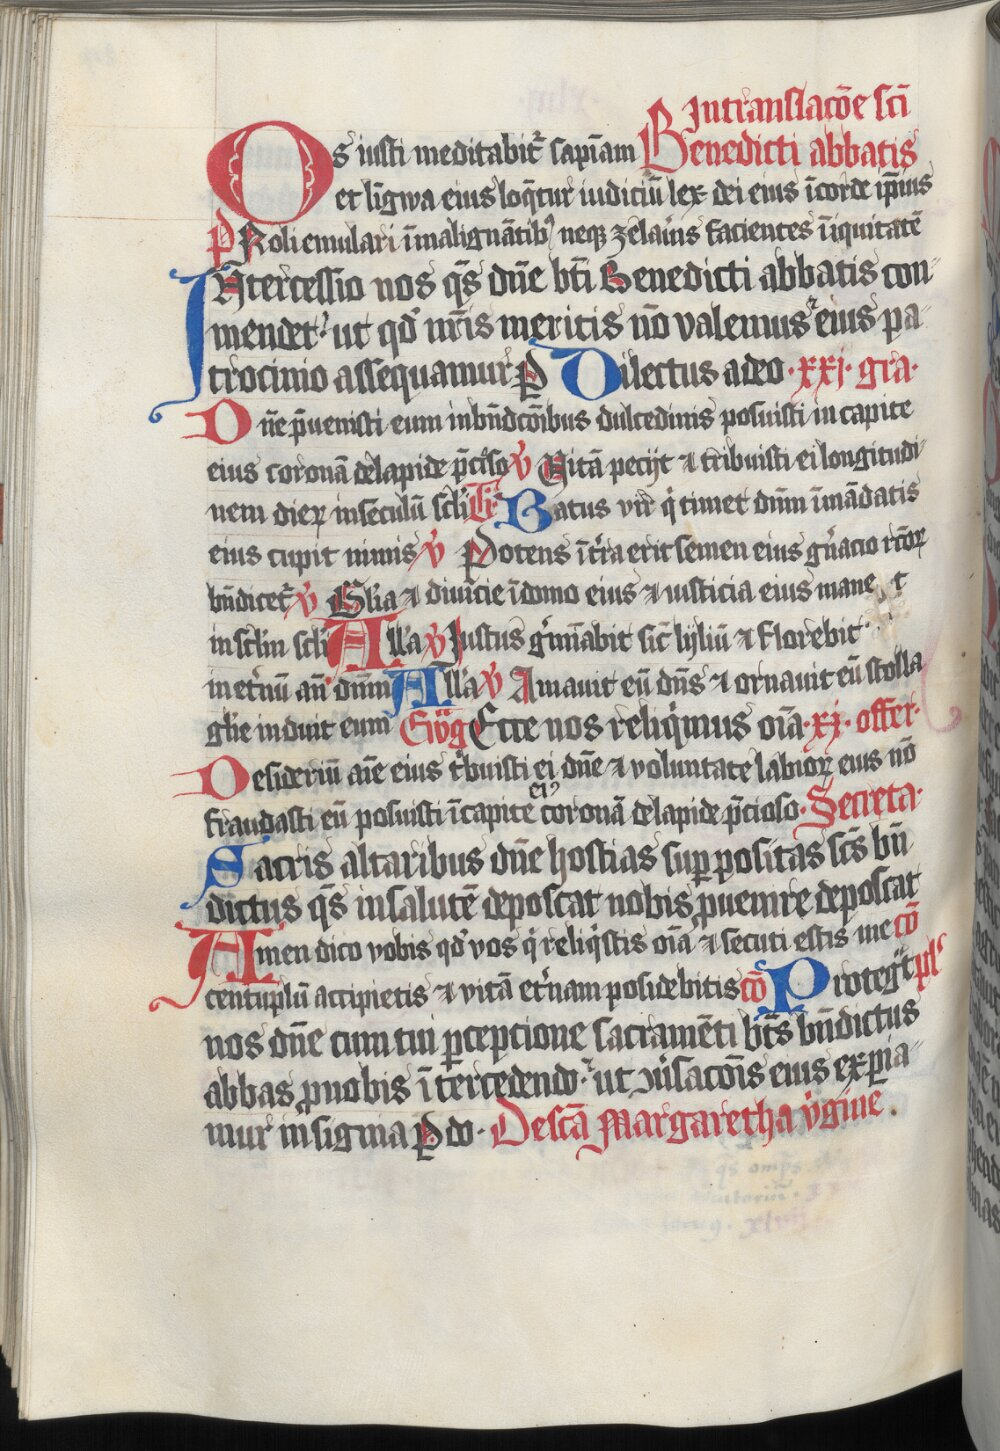 In translacōe scī
Os iusti meditabit᷑ sapīam Benedicti abbatis
et līgwa eius loq̄tur iudiciū lex dei eius ī corde ip̄ius
P̄ Noli emulari ī malignātibꝰ neqꝫ zelaīus facientes īiquitatē
Intercessio nos q̄s dn̄e bt̄i Benedicti abbatis con-
mendet ut qd̓ nr̄is meritis nō valemus eius pa-
trocinio assequamur P̲ Dilectus a deo · xxj · gra·
Dn̄e p̄uenisti eum in bn̄dcōibus dulcedinis posuisti in capite
eius coronā de lapide p̄cīso ℣ Vitā pecijt ⁊ tribuisti ei longitudi-
nem dieꝝ in seculū scl̄i Tr̄ Batus vir q̄ timet dn̄m ī mādatis
eius cupit nimis ℣ Potens ī tr̄a erit semen eius gn̄acio rc̄oꝝ
bn̄dicet᷑ ℣ Gl̄ia ⁊ diuicie ī domo eius ⁊ iusticia eius mane t
in scl̄m scl̄i All̄a ℣ Justus gīmabit sic̄ lyliū ⁊ florebit
in et̄nū an̄ dn̄m All̄a ℣ Amauit eū dn̄s ⁊ ornauit eū stolla
gl̄ie induit eum Ewg Ecce nos reliq̄imus oīa · xj · offer·
Desideriū aīe eius t̓buisti ei dn̄e ⁊ voluntate labioꝝ eius nō
fraudasti eū posuisti ī capite eiꝰ coronā de lapide p̄cioso · Secreta·
Sacris altaribus dn̄e hostias suꝑ positas sc̄s bn̄-
dictus q̄s in salutē deposcat nobis ꝓuenire deposcat
Amen dico vobis qd̓ vos q̄ reliq̄stis oīa ⁊ secuti estis me cō
centuplū accipietis ⁊ vitā et̄nam posidebitis cō Protegat pl̓
nos dn̄e cum tui ꝑceptione sacramēti bt̄s bn̄dictus
abbas ꝓ nobis ītercedendo ut ꝯūsacōis eius expia-
mur insignia P̲ do · De scā Margaretha v̓gine .